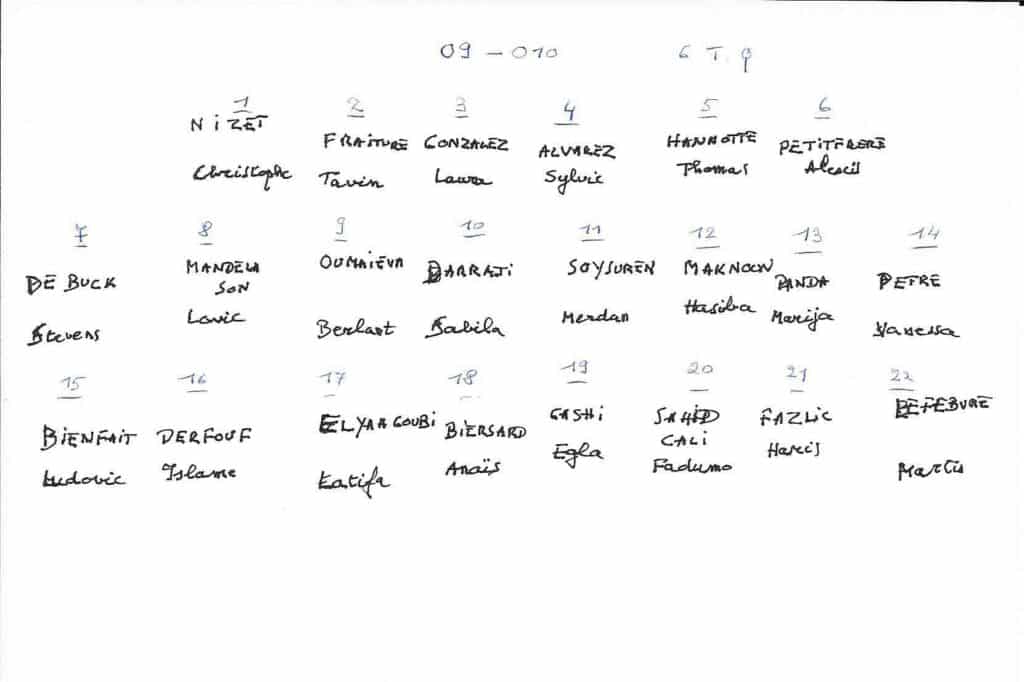 09 - 010 6 T. q
1 2 3 4 5 6
NIZET FRAITURE GONZALEZ ALVAREZ HANNOTTE PETITFRERE
Christophe Tavin Laura Sylvie Thomas Alexis
7 8 9 10 11 12 13 14
DE BUCK MANDELA OUMAIEVA DARRAJI SOYSUREN MAKNOUN PANDA PETRE
SON
Stevens Lovic Berlant Sabila Merdan Hasiba Marija Vanessa
15 16 17 18 19 20 21 22
BIENFAIT DERFOUF ELYAAGOUBI BIERSARD GASHI SAHID FAZLIC LEFEBURE
CALI
Ludovic Islame Latifa Anaïs Egla Fadumo Haris